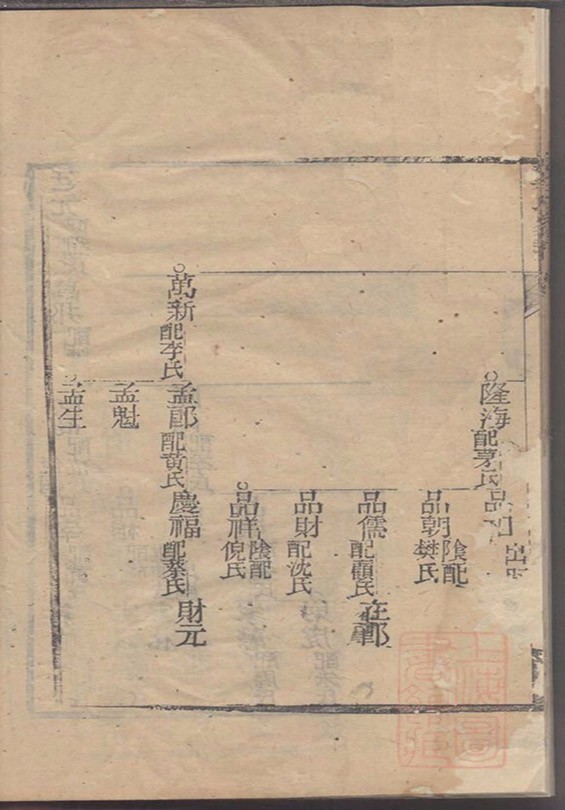 隆海配茅氏
品朝陰配樊氏
品儒配顧氏在郎
品財配沈氏
品祥陰配倪氏
萬新配李氏孟郎配黄氏慶福配蔡氏財元
孟魁
孟生